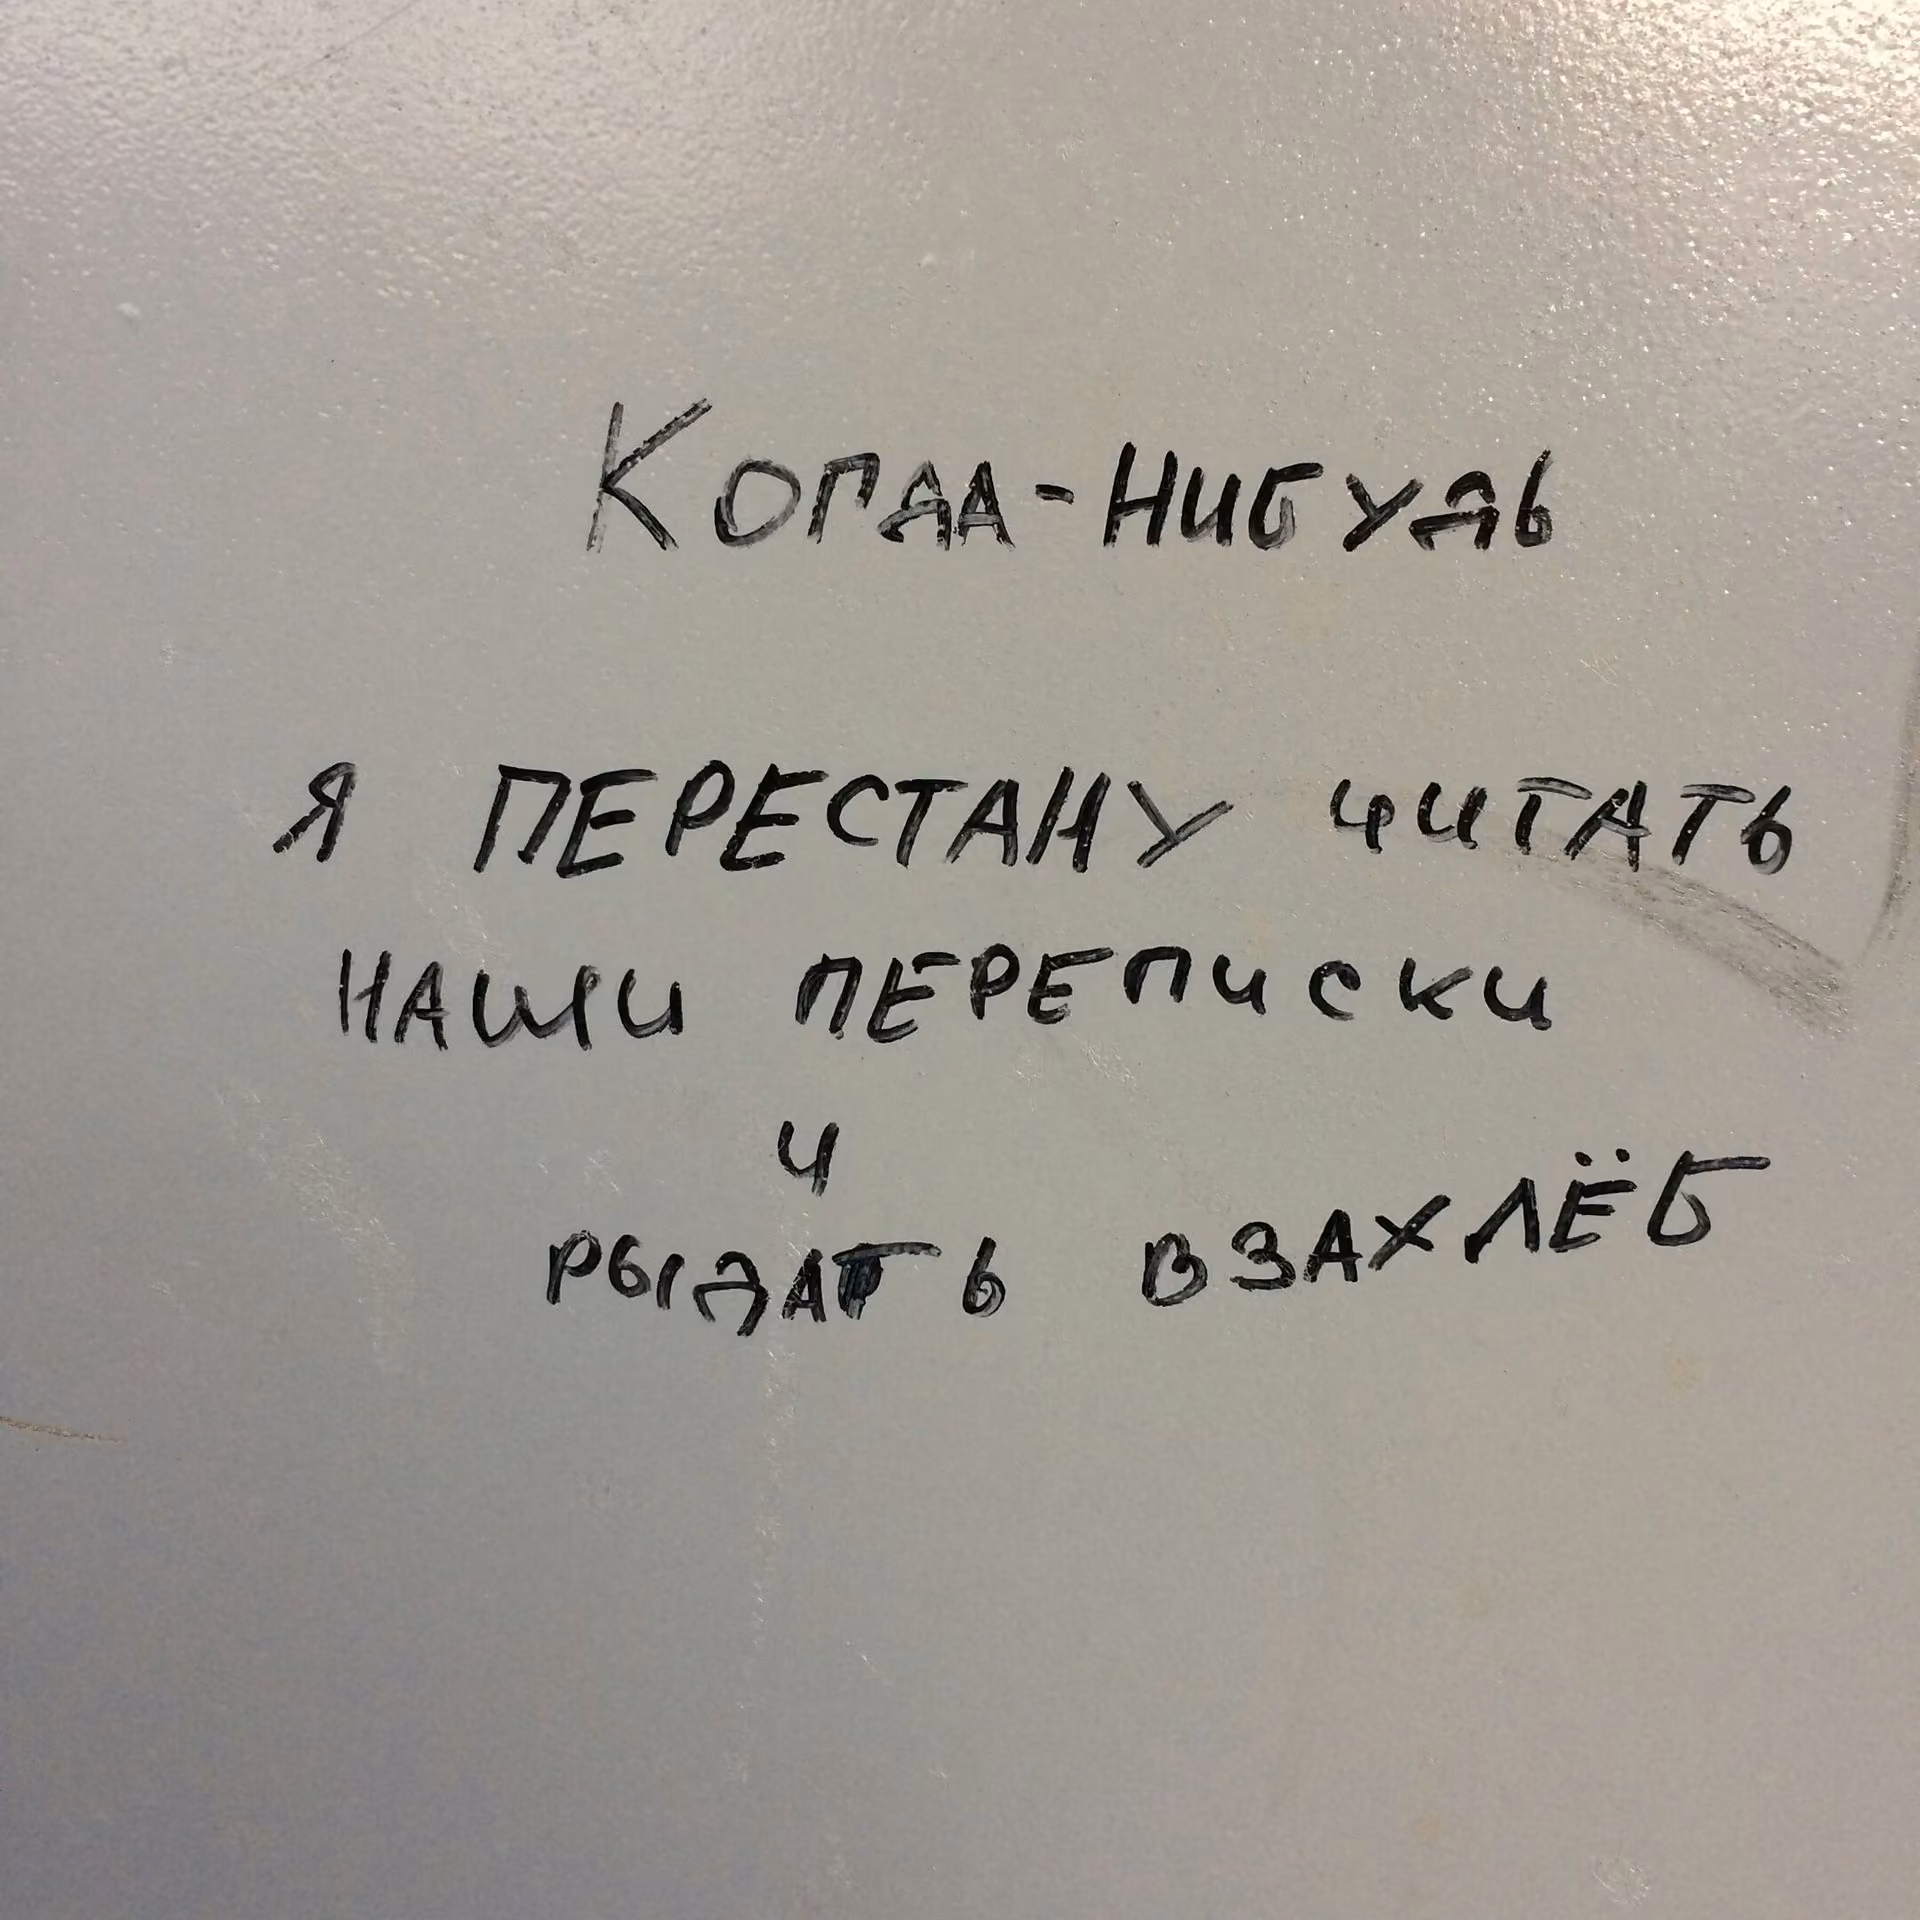 Когда-нибудь
я перестану читать
наши переписки
и
рыдать взахлёб